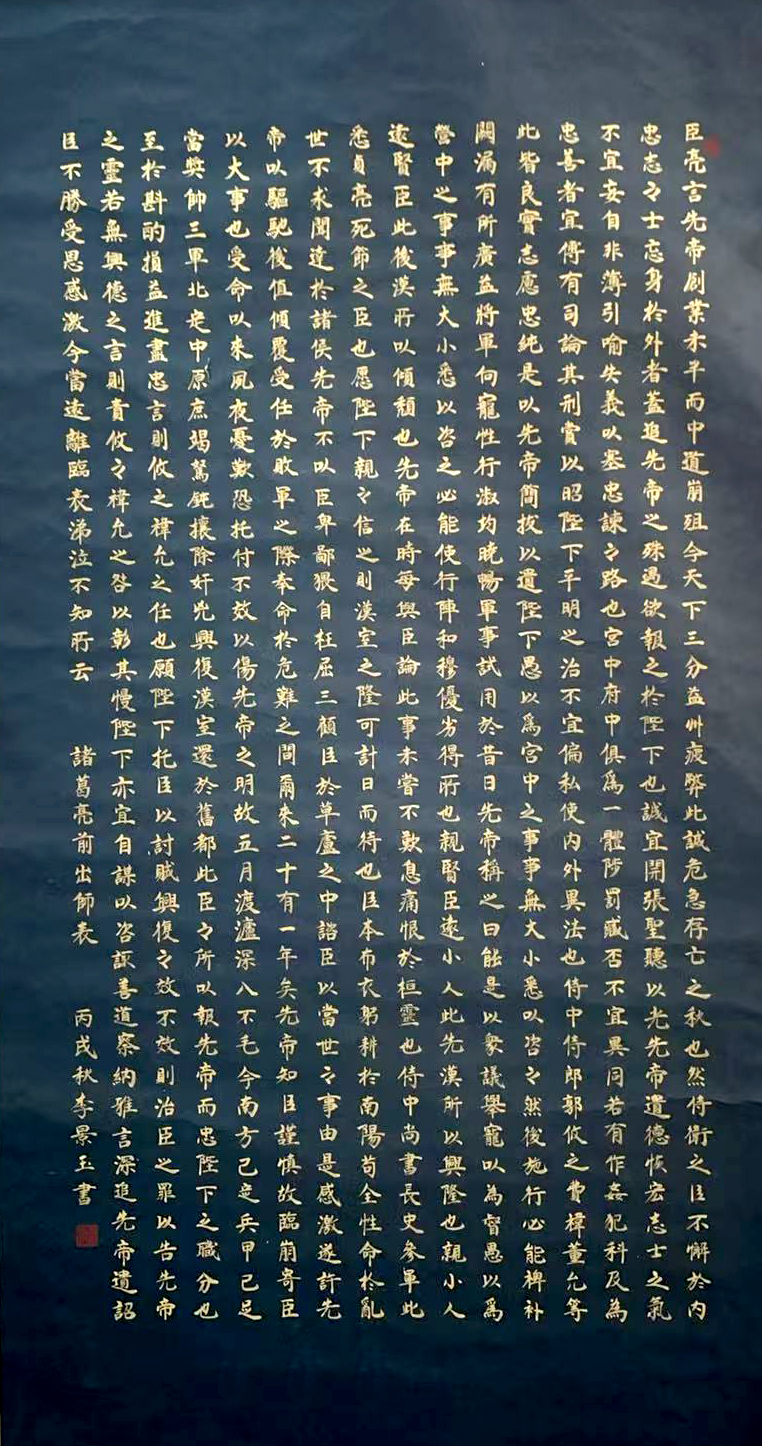 臣亮言先帝創業未半而中道崩殂今天下三分益州疲弊此誠危急存亡之秋也然侍衛之臣不懈於内
忠志之士忘身於外者蓋追先帝之殊遇欲報之於陛下也誠宜開張聖聽以光先帝遺德恢宏志士之氣
不宜妄自非薄引喻失義以塞忠諫之路也宮中府中俱爲一體陟罰臧否不宜異同若有作姦犯科及為
忠善者宜傅有司論其刑賞以昭陛下平明之治不宜偏私使内外異法也侍中侍郎郭攸之費禕董允等
此皆良實志慮忠純是以先帝簡拔以遺陛下愚以爲宮中之事事無大小悉以咨之然後施行必能裨补
闕漏有所廣益將軍向寵性行淑均曉暢軍事試用於昔日先帝稱之曰能是以衆議舉寵以為督愚以爲
營中之事事無大小悉以咨之必能使行陣和穆優劣得所也親賢臣遠小人此先漢所以興隆也親小人
遠賢臣此後漢所以傾頹也先帝在時每與臣論此事未嘗不歎息痛恨於桓靈也侍中尚書長史參軍此
悉貞亮死節之臣也愿陛下親之信之則漢室之隆可計日而待也臣本布衣躬耕於南陽苟全性命於亂
世不求聞達於諸侯先帝不以臣卑鄙猥自枉屈三顧臣於草廬之中諮臣以當世之事由是感激遂許先
帝以驅馳後值傾覆受任於敗軍之際奉命於危難之間爾來二十有一年矣先帝知臣謹慎故臨崩寄臣
以大事也受命以來夙夜憂歎恐托付不效以傷先帝之明故五月渡瀘深入不毛今南方已定兵甲已足
當獎帥三軍北定中原庶竭駑鈍攘除奸兇興復漢室還於舊都此臣之所以報先帝而忠陛下之職分也
至於斟酌損益進盡忠言則攸之禕允之任也願陛下托臣以討賊興復之效不效則治臣之罪以告先帝
之靈若無興德之言則責攸之禕允之咎以彰其慢陛下亦宜自謀以咨諏善道察納雅言深追先帝遺詔
臣不勝受恩感激今當遠離臨表涕泣不知所云 諸葛亮前出師表 丙戌秋李景玉書